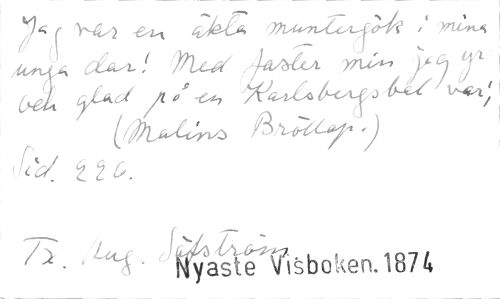 Jag var en äkta muntergök i mina
unga dar! Med faster min jag yr
och glad på en Karlsbergsbal var!,
(Malins Bröllop.)
Sid. 220.
Tx. Aug. Säfström.
Nyaste Visboken. 1874